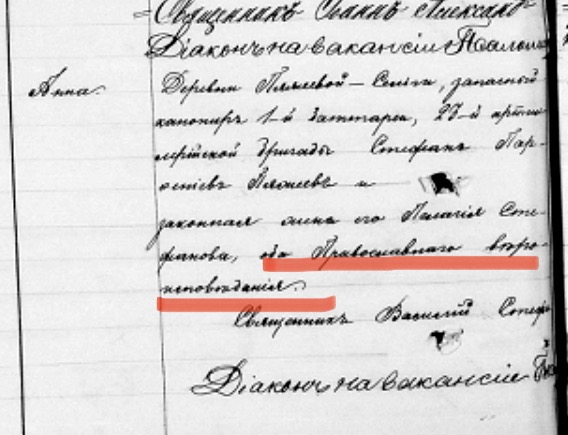 Священникъ Іоаннъ Александ
Діаконъ на вакансіи Псалом
Анна.
Деревни Пляжевой-Сельги, запасный
канониръ 1-й баттареи, 23-й артил-
лерійской бригады Стефанъ Пар-
и
законная жена его Пелагія Сте-
фанова, оба Православнаго вѣро-
исповѣданія.
Священникъ Василій Стеф
Діаконъ на вакансіи